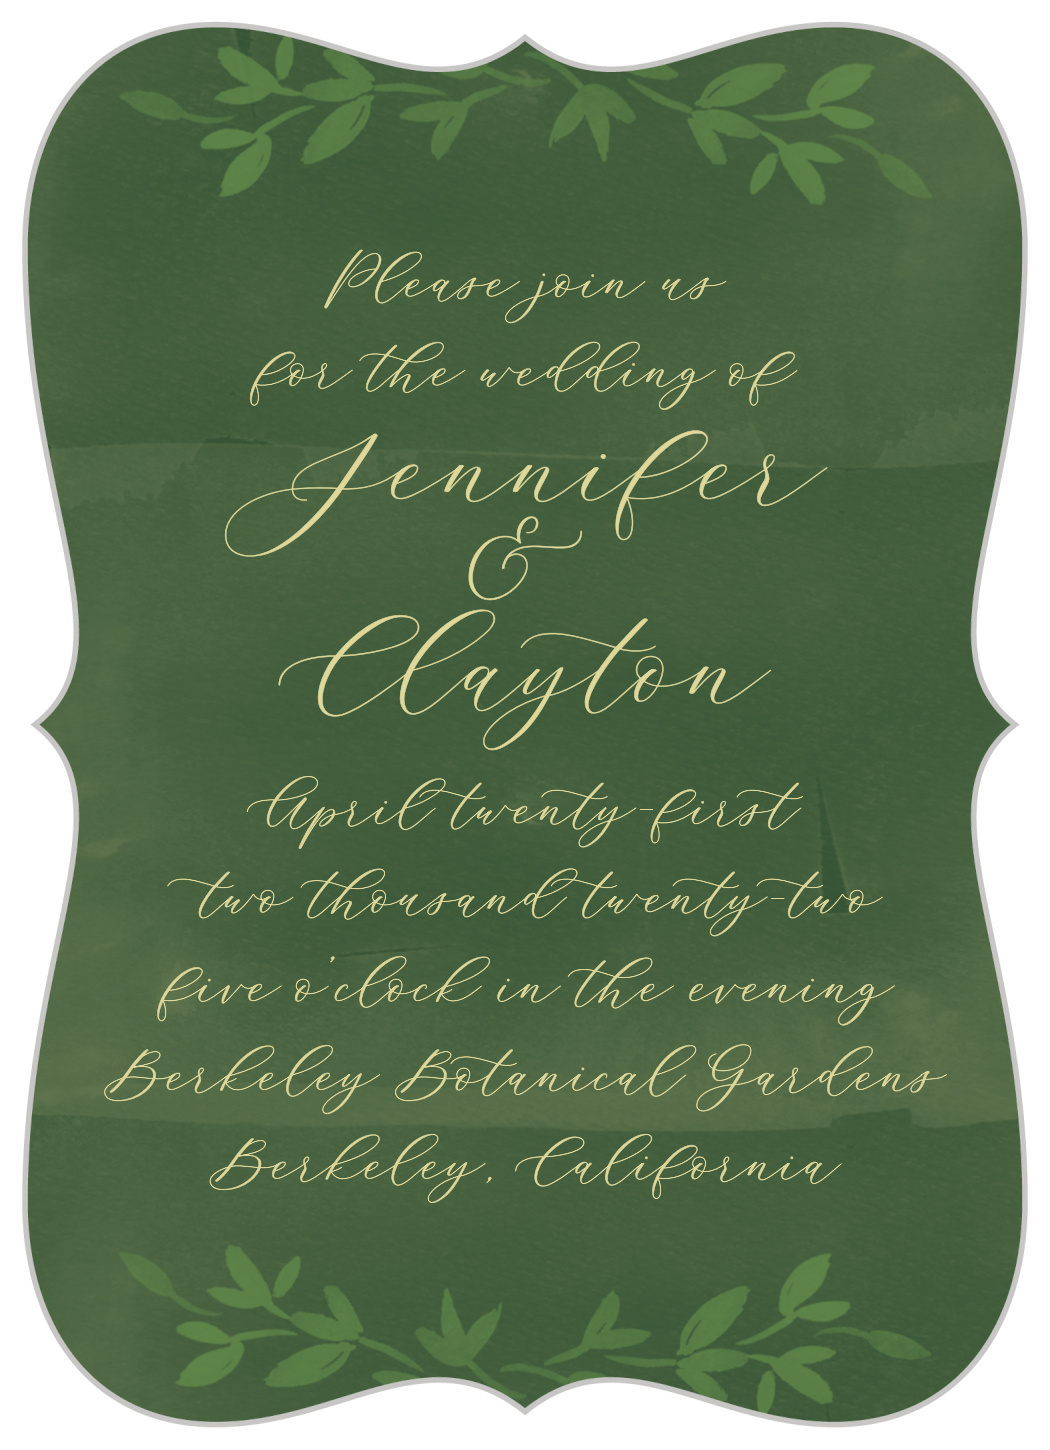 Please join us
for the wedding of
Jennifer
&
Clayton
April twenty-first
two thousand twenty-two
five o'clock in the evening
Berkeley Botanical Gardens
Berkeley, California